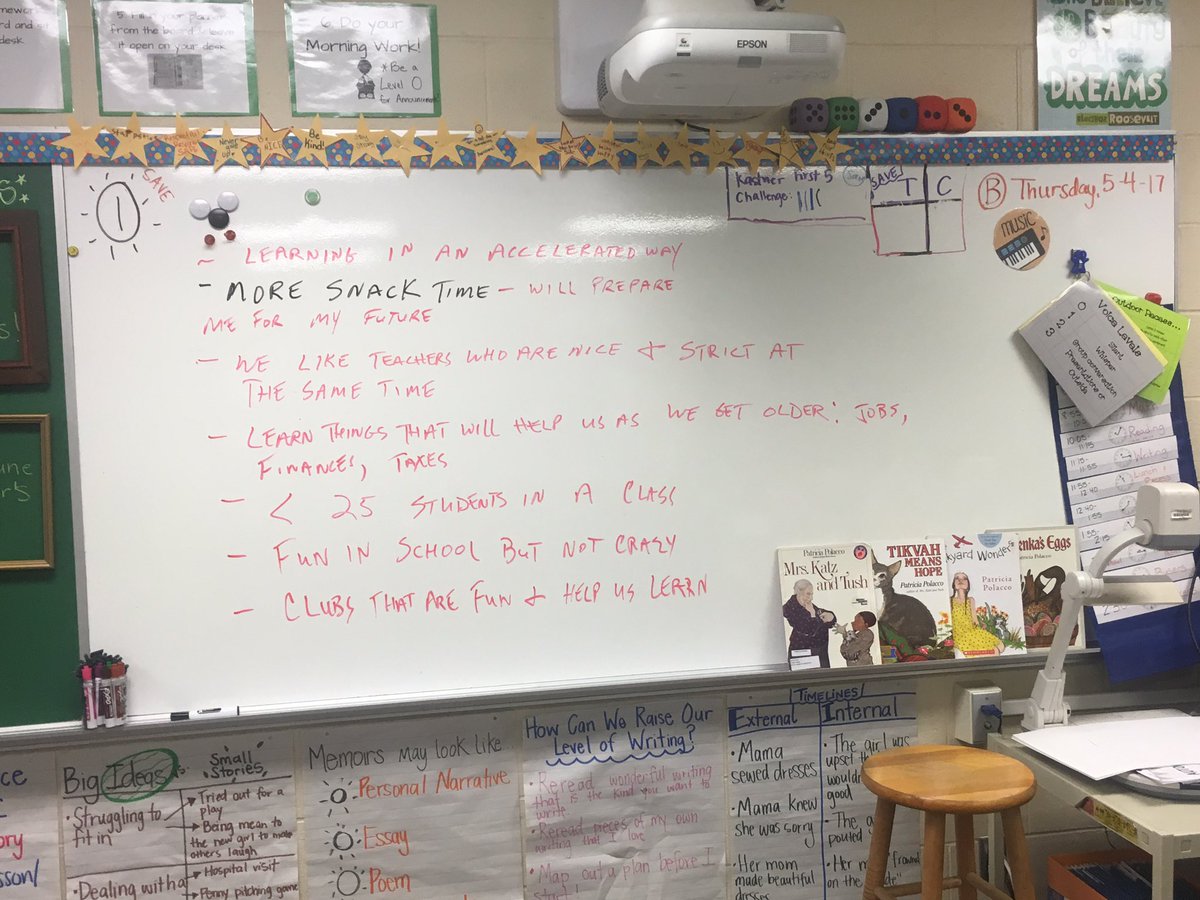 rd and se
desk.
from the board & leave
it open on your desk
6. Do your
Morning Work!
*Be a
Level 0
for Announcements
EPSON
BELIEVE
DREAMS
ELEANOR ROOSEVELT
Be
Kind!
NICE
1
SAVE
Kastner First 5
Challenge:
SAVE
T C
B Thursday, 5-4-17
MUSIC
~ LEARNING IN AN ACCELERATED WAY
- MORE SNACK TIME - WILL PREPARE
ME FOR MY FUTURE
- WE LIKE TEACHERS WHO ARE NICE & STRICT AT
THE SAME TIME
- LEARN THINGS THAT WILL HELP US AS WE GET OLDER: JOBS,
FINANCES, TAXES
- < 25 STUDENTS IN A CLASS
- FUN IN SCHOOL BUT NOT CRAZY
- CLUBS THAT ARE FUN & HELP US LEARN
Voice Levels
0 Silent
1 Whisper
2 Group conversation
3 Presentations or
Outside
10:05-
11:15
Reading
11:15-
11:55
Writing
11:55-
12:40
12:40-
1:55
Patricia Polacco
Mrs. Katz
and Tush
TIKVAH
MEANS
HOPE
Patricia Polacco
kyard Wonders
Patricia
Polacco
SCHOLASTIC
enka's Eggs
Patricia Polacco
Big Ideas
Small
Stories
• Struggling to
fit in
Tried out for a
play
Being mean to
the new girl to make
others laugh
• Dealing with a
Hospital visit
Penny pitching game
Memoirs may look like...
Personal Narrative
Essay
Poem
How Can We Raise Our
Level of Writing?
• Reread wonderful writing
that is the kind you want to
write.
• Reread pieces of my own
writing that I love
• Map out a plan before I
start!
TIMELINES/
External
Internal
• Mama
sewed dresses
• Mama knew
she was sorry
• Her mom
made beautiful
dresses
• The girl was
upset
would
good
• The
pouted
• Her
on the